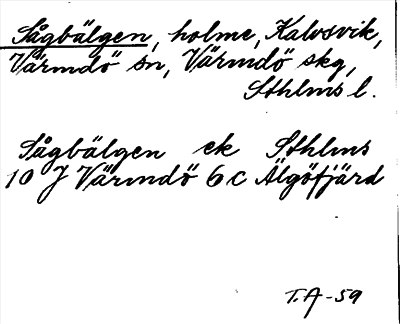 Sågbälgen, holme, Kalvsvik,
Värmdö sn, Värmdö skg,
Sthlms l.
Sågbälgen ek Sthlms
10 J Värmdö 6 c Älgöfjärd
T.A-59